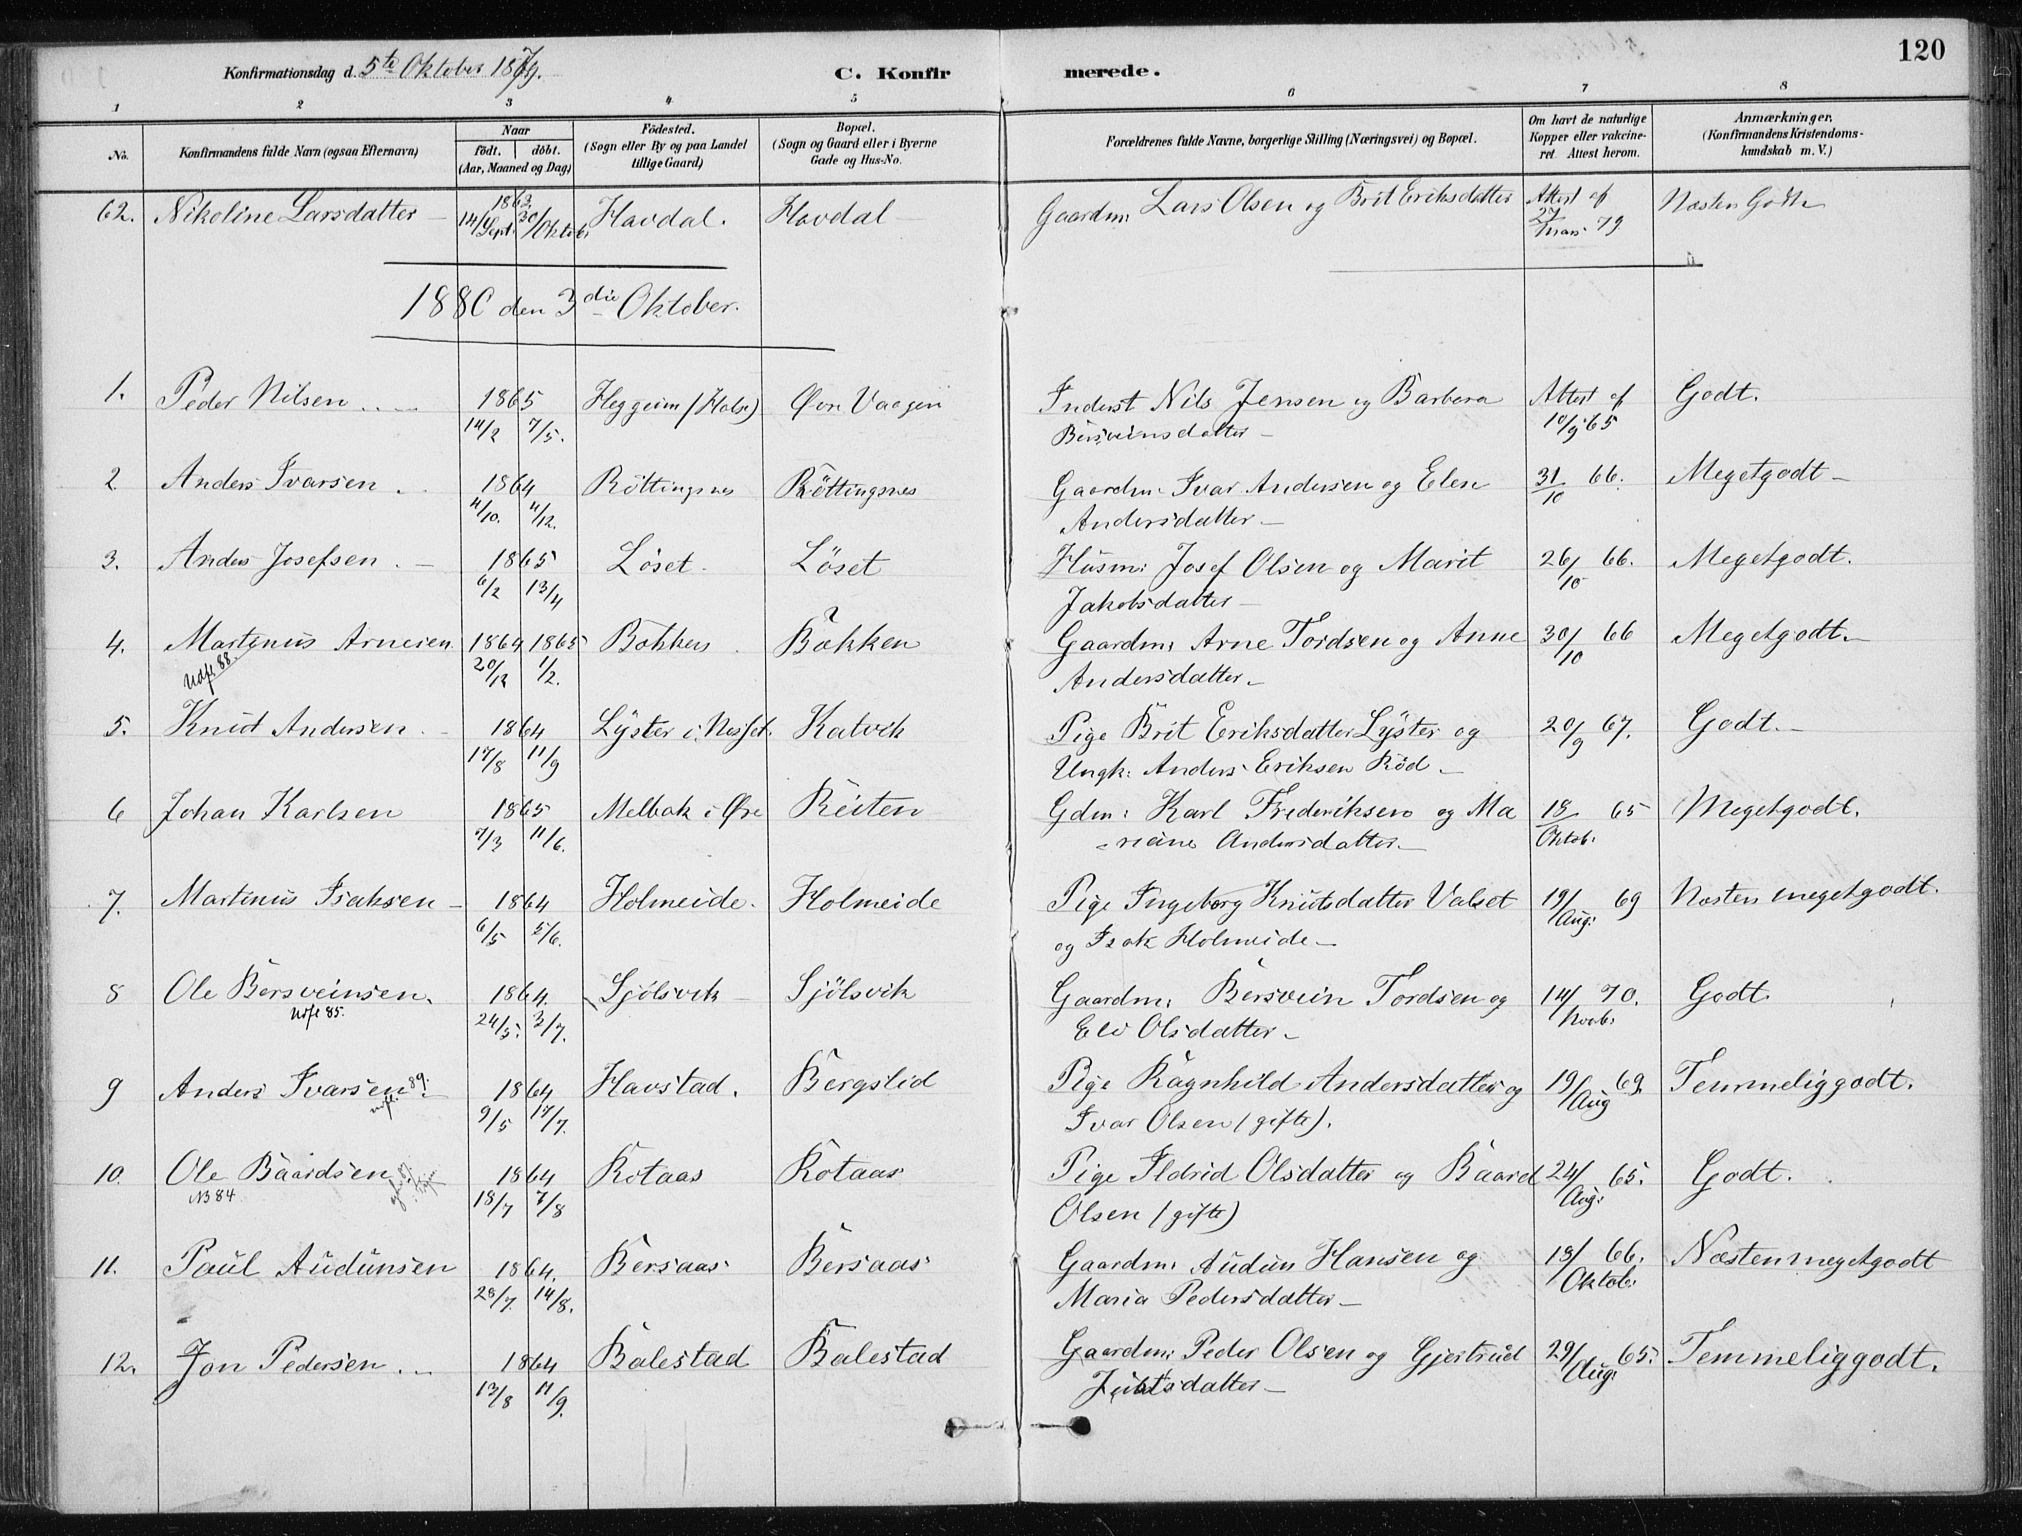 120
Konfirmationsdag d. 5te Oktober 1879. C. Konfirmerede.
1 2 3 4 5 6 7 8
No. Konfirmandens fulde Navn (ogsaa Efternavn) Naar født. døbt. (Aar, Maaned og Dag) Fødested. (Sogn eller By og paa Landet tillige Gaard) Bopæl. (Sogn og Gaard eller i Byerne Gade og Hus-No. Forældrenes fulde Navne, borgerlige Stilling (Næringsvei) og Bopæl. Om havt de naturlige Kopper eller vakcineret Attest herom. Anmærkninger. (Konfirmandens Kristendomskundskab m. V.)
62. Nikoline Larsdatter 1863 14/Sept. 30/Oktob. Havdal. Havdal Gaardm: Lars Olsen og Brit Eriksdatter Attest af 27/Mars 79 Næsten Godt
1880 den 3die Oktober.
1. Peder Nilsen 1865 Heggeim (Halse) Øvre Vaagen Inderst Nils Jensen og Barbara Attest af Godt.
14/2 7/5. Bersveinsdatter 10/9 65
2 Anders Ivarsen 1864 Röttingsnes Röttingsnes Gaardm: Ivar Andersen og Elen 31/10 66. Megetgodt
4/10. 4/12. Andersdatter
3. Anders Josefsen 1865 Löset Löset Husm: Josef Olsen og Marit 26/10 66. Megetgodt.
6/2 13/4 Jakobsdatter
4. Martinus Arnesen 1864 1865 Bakken Bakken Gaardm: Arne Tordsen og Anne 30/10 66 Megetgodt.
Udfl. 88. 20/12 1/2. Andersdatter
5. Knut Andersen 1864 Lyster i Nesset. Kalvik Pige Brit Eriksdatter Lyster og 20/9 67. Godt.
17/8 11/9 Ungk: Anders Eriksen Röd
6 Johan Karlsen 1865 Melbak i Øre Reiten Gdm: Karl Frederiksen og Ma 18/Oktob: 65 Megetgodt.
7/3 11/6. riane Andersdatter
7. Martinus Isaksen 1864 Holmeide. Holmeide Pige Ingeborg Knutsdatter Valset 19/Aug: 69 Næsten megetgodt.
6/5 5/6. og Isak Holmeide
8 Ole Bersveinsen 1864. Sjölsvik Sjölsvik Gaardm: Bersvein Tordsen og 14/Novb: 70. Godt.
Udfl 85. 24/5. 3/7. Eli Olsdatter
9 Anders Ivarsen Udfl. 89. 1864 Havstad. Bergslid Pige Ragnhild Andersdatter og 19/Aug 69. Temmeliggodt.
9/5 17/7. Ivar Olsen (gifte).
10. Ole Baardsen 1864 Rotaas Rotaas Pige Ildrid Olsdatter og Baard 24/Aug: 65. Godt.
NB 84 18/7 7/8 Olsen (gifte)
11. Paul Audunsen 1864. Bersaas Bersaas Gaardm: Audun Hansen og 13/Oktob: 66. Næsten megetgodt
28/7. 14/8. Maria Pedersdatter
12. Jon Pedersen 1864 Balestad Balestad Gaardm: Peder Olsen og Gjertrud 29/Aug: 65. Temmeliggodt.
13/8 11/9.